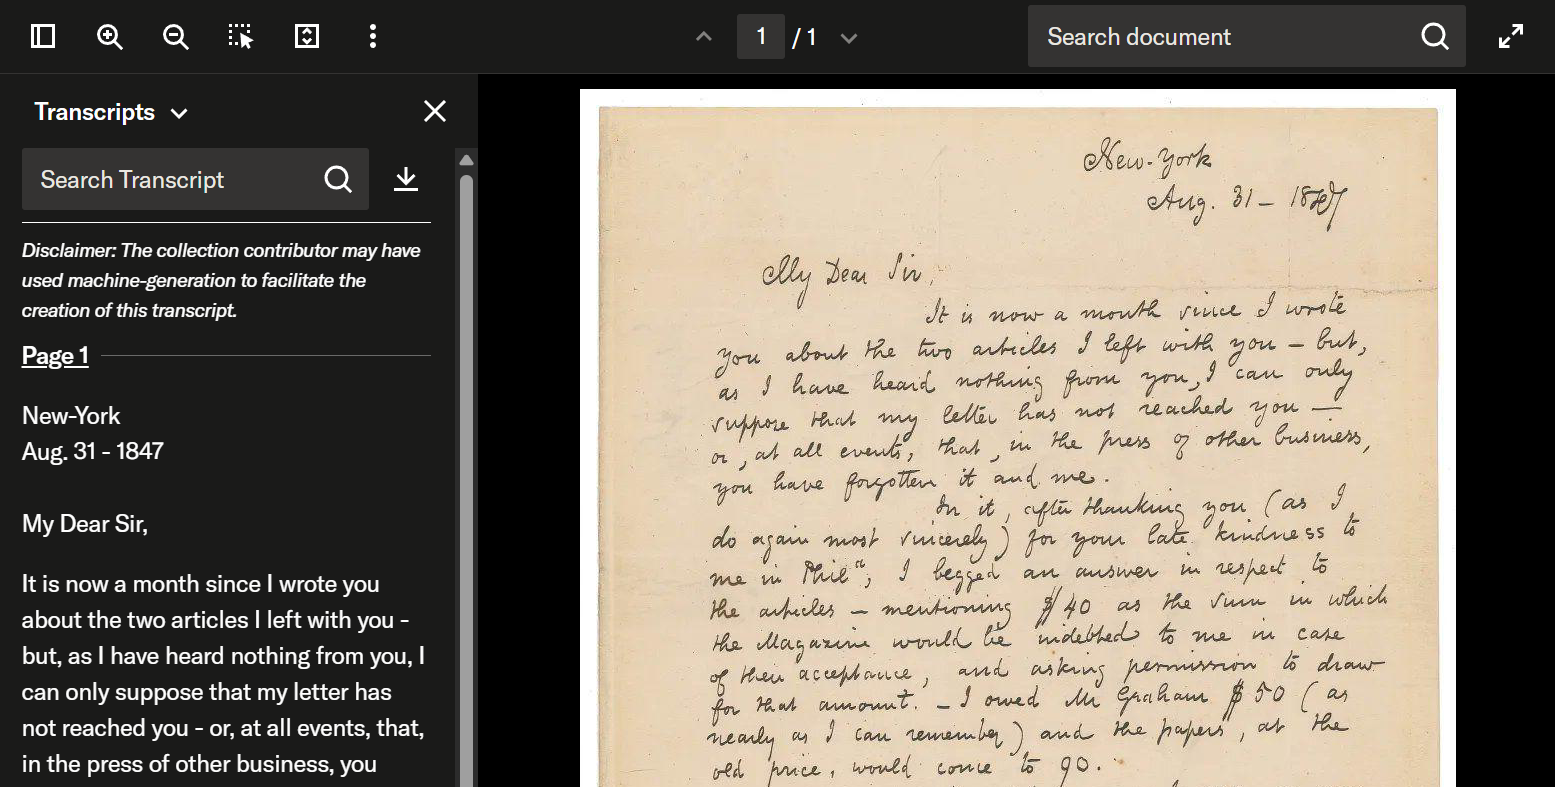 1 / 1
Search document
Transcripts
Search Transcript
Disclaimer: The collection contributor may have
used machine-generation to facilitate the
creation of this transcript.
Page 1
New-York
Aug. 31 - 1847
My Dear Sir,
It is now a month since I wrote you
about the two articles I left with you -
but, as I have heard nothing from you, I
can only suppose that my letter has
not reached you - or, at all events, that,
in the press of other business, you
New-York
Aug. 31 – 1847
My Dear Sir,
It is now a month since I wrote
you about the two articles I left with you — but,
as I have heard nothing from you, I can only
suppose that my letter has not reached you —
or, at all events, that, in the press of other business,
you have forgotten it and me.
In it, after thanking you (as I
do again most sincerely) for your late kindness to
me in Philª, I begged an answer in respect to
the articles — mentioning $40 as the sum in which
the Magazine would be indebted to me in case
of their acceptance, and asking permission to draw
for that amount. — I owed Mr Graham $50 (as
nearly as I can remember) and the papers, at the
old price, would come to 90.